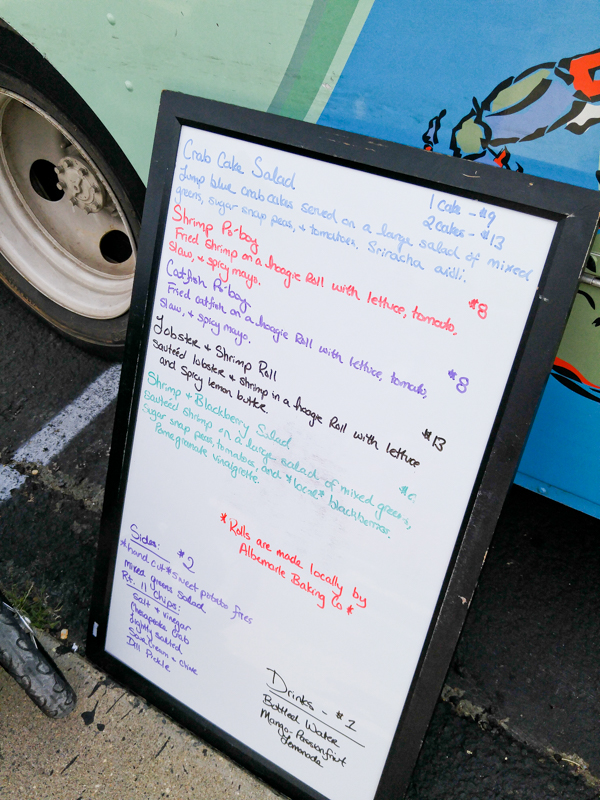 Crab Cake Salad
1 cake - $9
2 cakes - $13
Jump blue crab cakes served on a large salad of mixed
greens, sugar snap peas, & tomatoes. Sriracha aioli.
Shrimp Po-boy
$8
Fried shrimp on a hoagie Roll with lettuce, tomato,
slaw, & spicy mayo.
Catfish Po-boy
$8
Fried catfish on a hoagie Roll with lettuce, tomato,
slaw, & spicy mayo.
Lobster & Shrimp Roll
$13
sauteéd lobster & shrimp in a hoagie Roll with lettuce
and spicy lemon butter.
Shrimp & Blackberry Salad
sauteéd shrimp on a large salad of mixed greens,
sugar snap peas, tomatoes, and *local* blackberries.
Pomegranate vinaigrette.
*Rolls are made locally by
Albemarle Baking Co*
Sides: $2
*hand cut* sweet potato fries
mixed greens salad
Rt. 11 Chips:
salt & vinegar
Chesapeake Crab
Lightly salted
Sour Cream & Chive
Dill Pickle
Drinks - $1
Bottled Water
Mango-Passionfruit
Lemonade